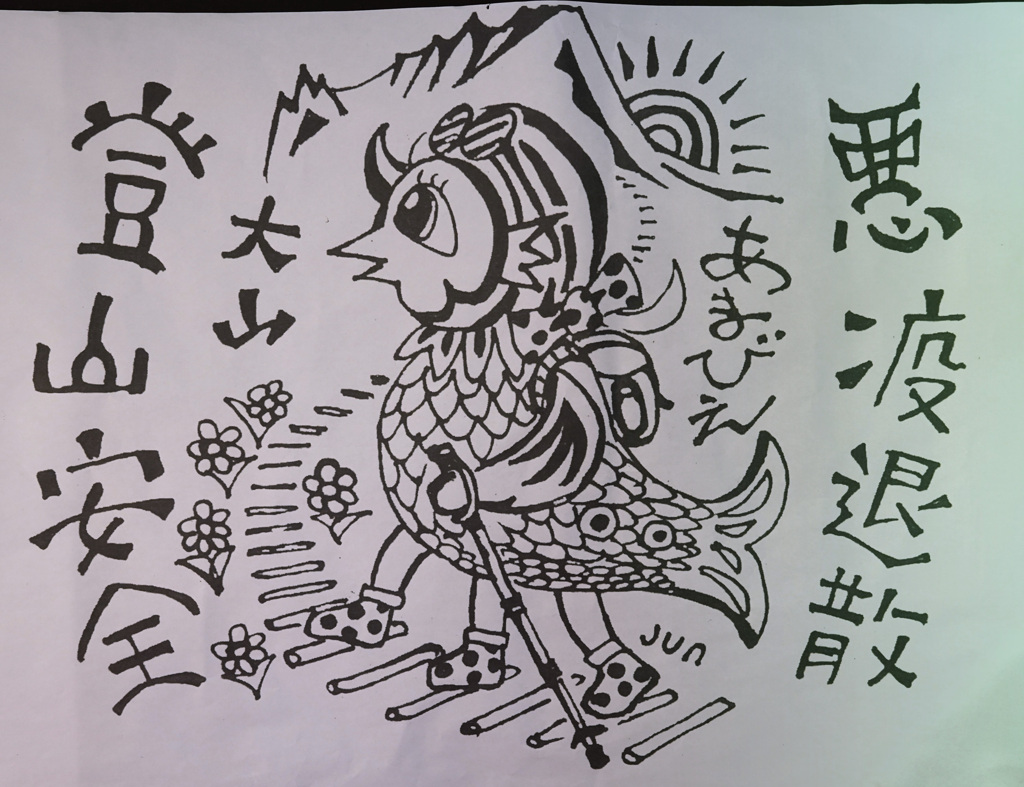 悪疫退散
あまびえ
大山
登山安全
Jun